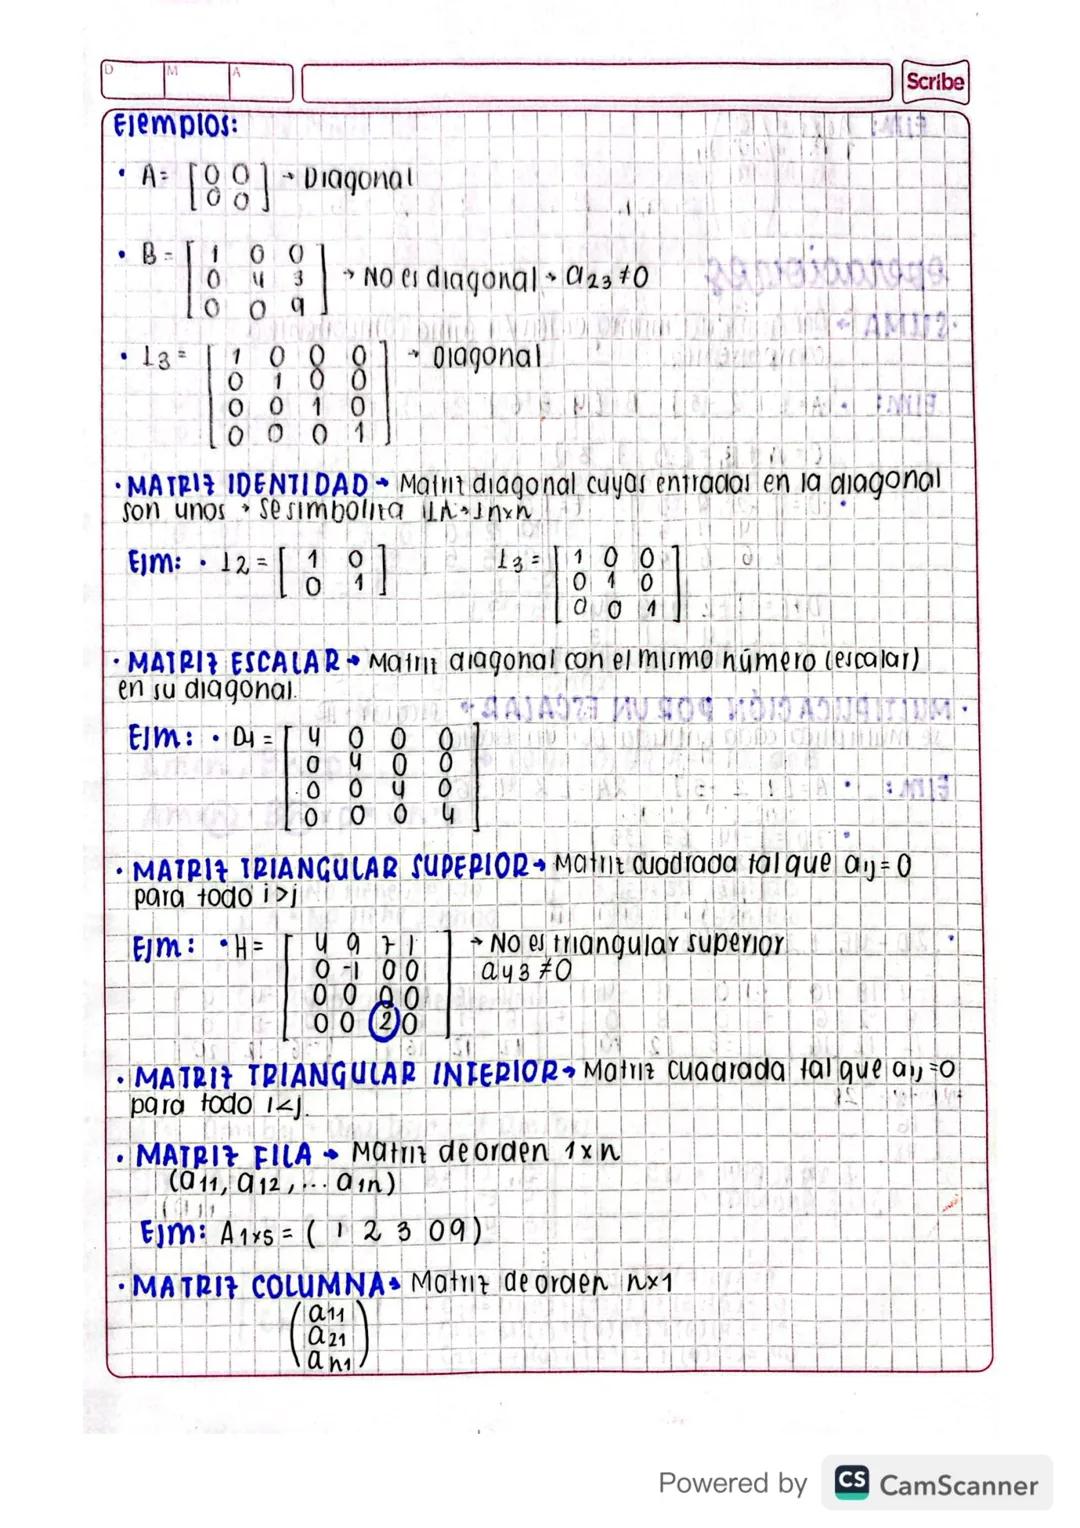 D M A
Scribe
Ejemplos:
• A = [0 0 → Diagonal
0 0]
• B = [1 0 0
0 4 3 → No es diagonal → a23 ≠ 0
0 0 9]
• I3 = [1 0 0 0 → Diagonal
0 1 0 0
0 0 1 0
0 0 0 1]
• MATRIZ IDENTIDAD → Matriz diagonal cuyas entradas en la diagonal
son unos → se simboliza
Ejm: • I2 = [1 0 I3 = [1 0 0
0 1] 0 1 0
0 0 1]
• MATRIZ ESCALAR → Matriz diagonal con el mismo número (escalar)
en su diagonal.
Ejm: • D4 = [4 0 0 0
0 4 0 0
0 0 4 0
0 0 0 4]
• MATRIZ TRIANGULAR SUPERIOR → Matriz cuadrada tal que aij = 0
para todo i>j
Ejm: • H = [4 9 7 1 → No es triangular superior
0 -1 0 0 a43 ≠ 0
0 0 0 0
0 0 2 0]
• MATRIZ TRIANGULAR INFERIOR → Matriz cuadrada tal que aij = 0
para todo i<j.
• MATRIZ FILA → Matriz de orden 1xn
(a11, a12, ... a1n)
Ejm: A1x5 = ( 1 2 3 0 9 )
• MATRIZ COLUMNA → Matriz de orden nx1
(a11
a21
an1)
Powered by CS CamScanner